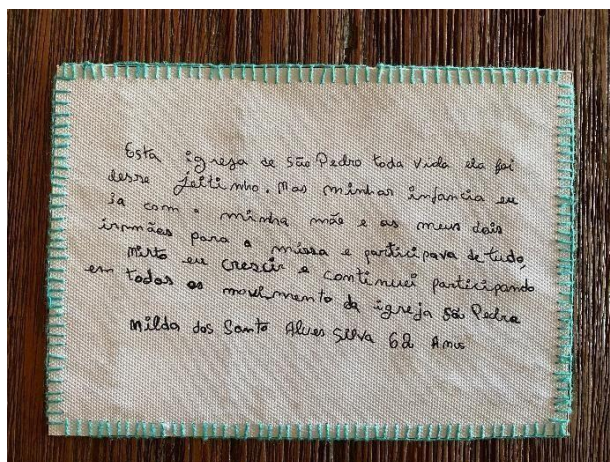 Esta igreja de São Pedro toda vida ela foi
desse jeitinho. Mas minhas infancia eu
ia com a minha mãe e as meus dois
irmães para a missa e participava de tudo,
nisto eu crescir e continuei participando
em todos os movimento da igreja são Pedro
Milda dos Santo Alves Silva 62 Anos